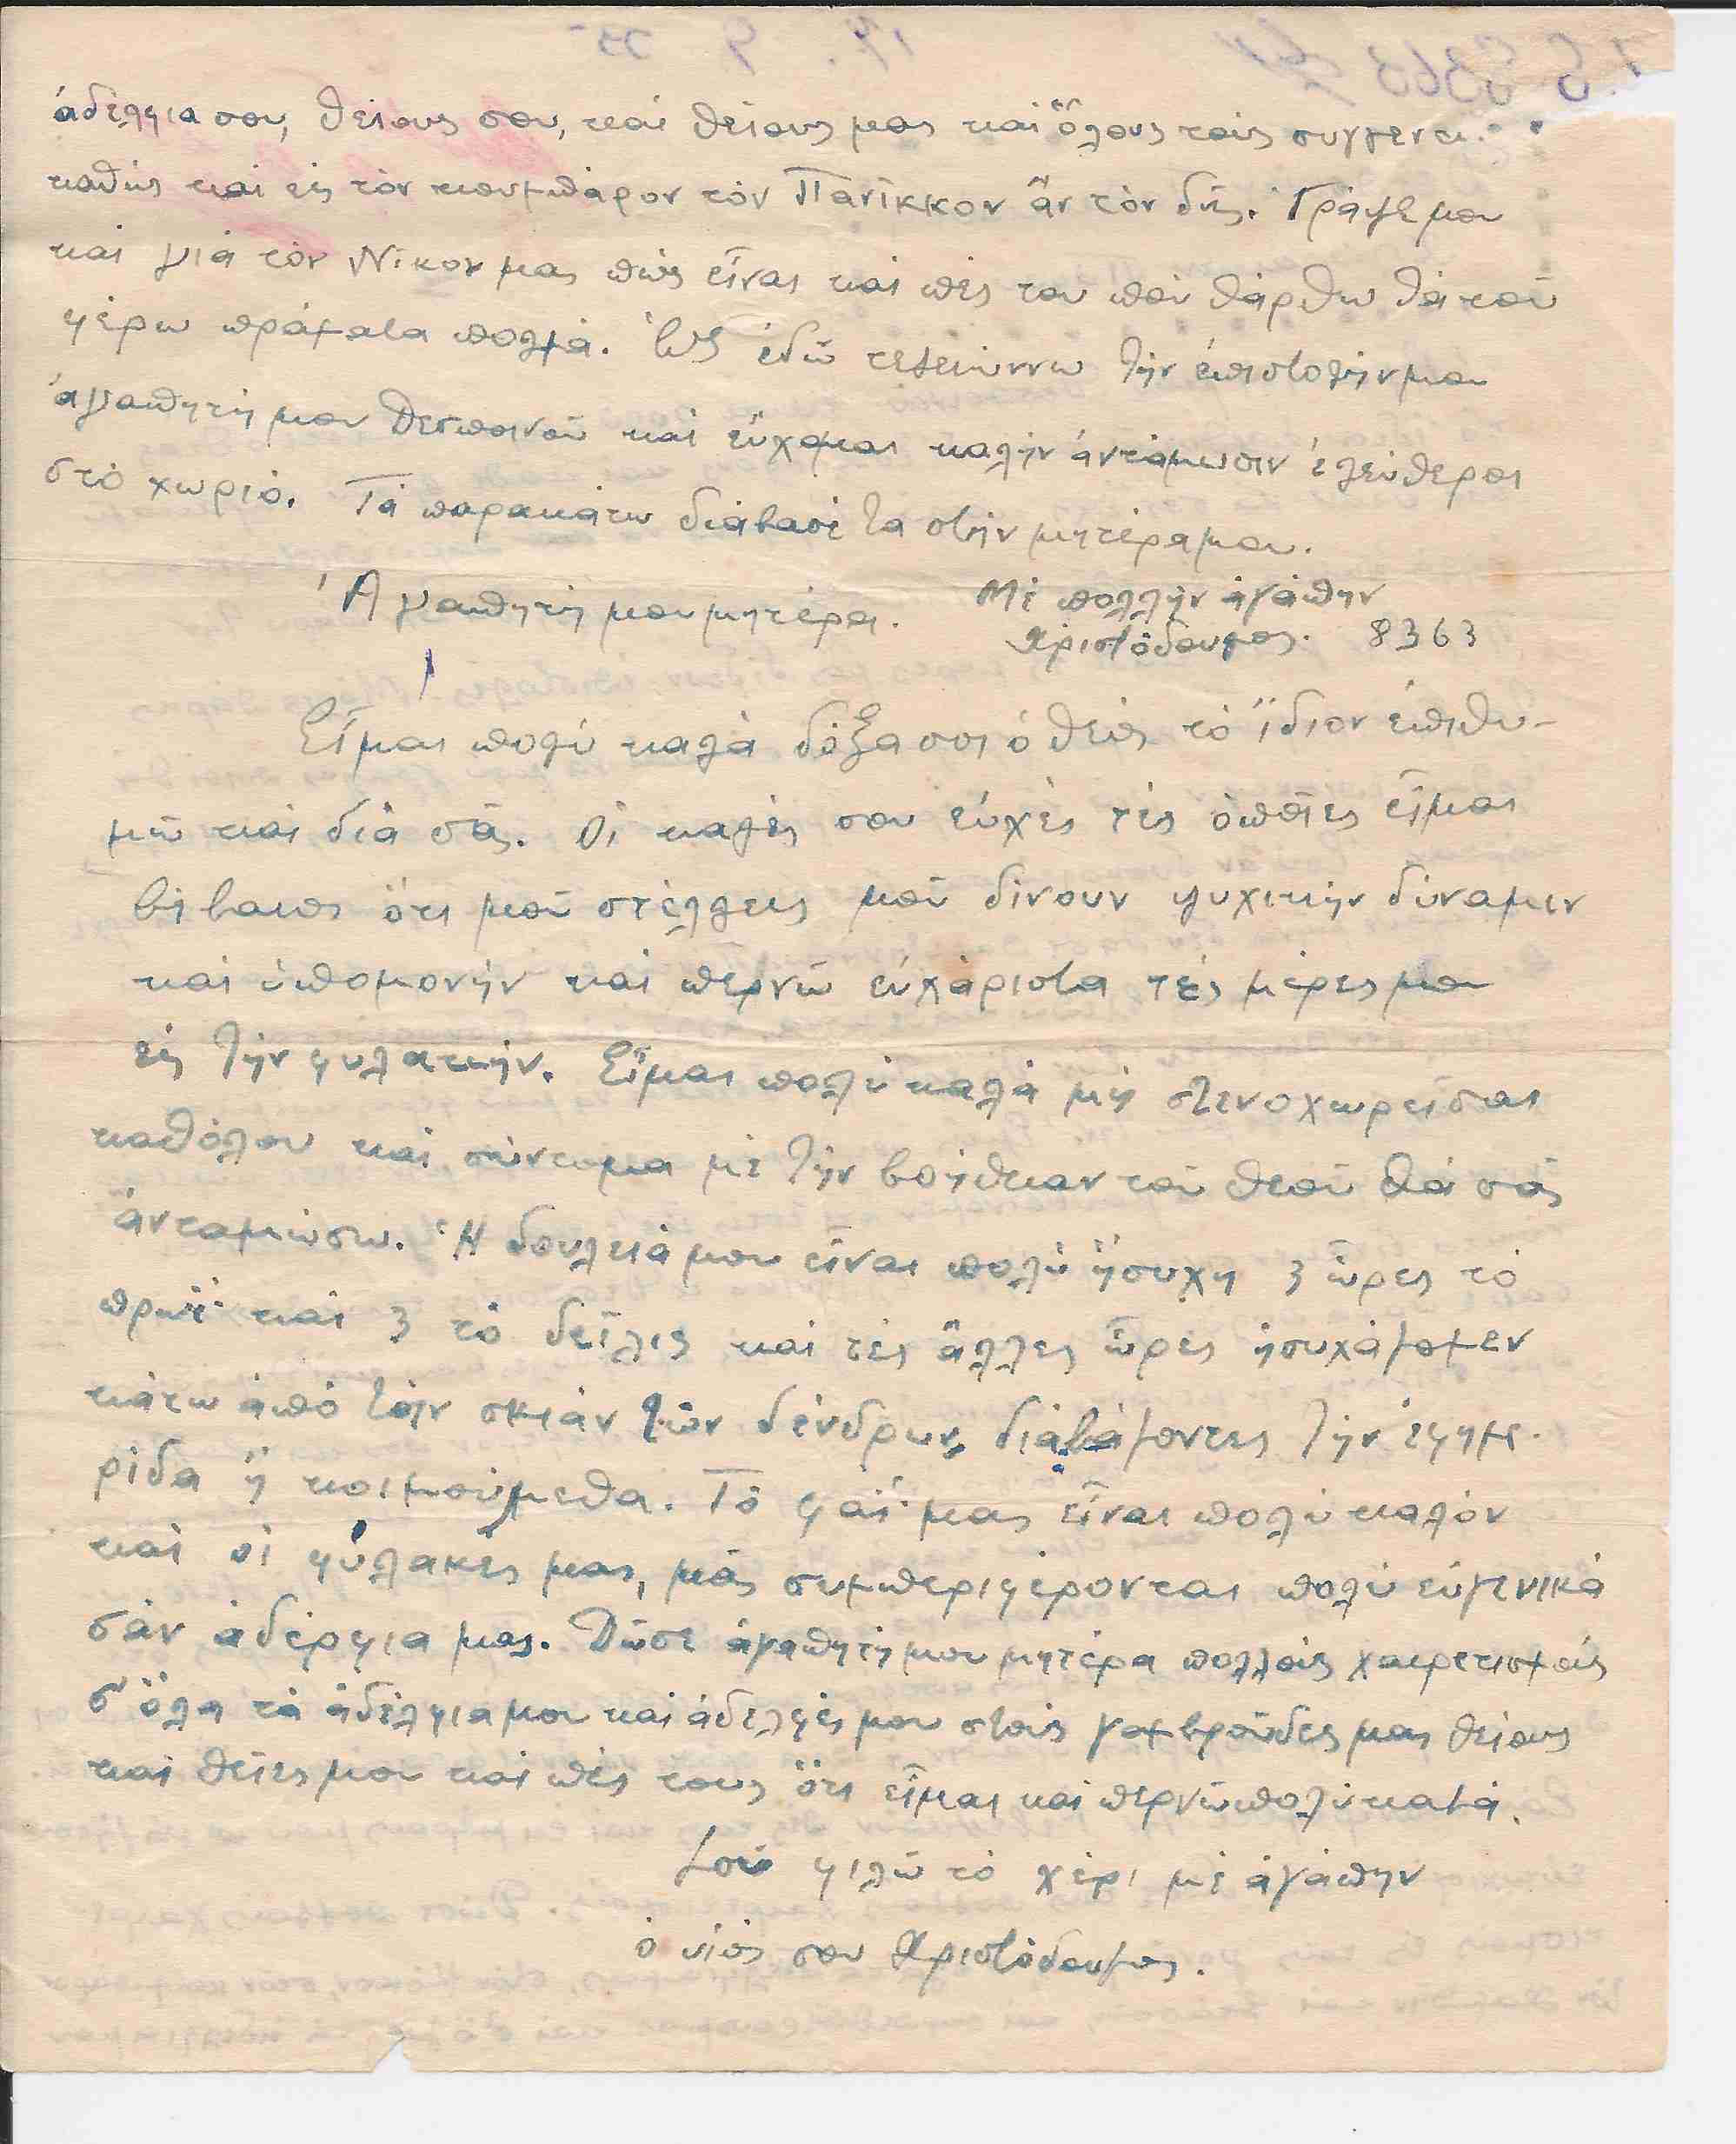 ἀδέλφια σου, θείους σου, καί θείους μας καί ὅλους τούς συγγενεῖς
καθώς καί εἰς τόν κουμπάρον τόν Πανίκκον ἄν τόν δῇς. Γράψε μου
καί γιά τόν Νίκον μας πῶς εἶναι καί πές του πού θάρθω θά τοῦ
φέρω πράματα πολλά. Ὥς ἐδῶ τελειώννω τήν ἐπιστολήν μου
ἀγαπητή μου Δεσποινοῦ καί εὔχομαι καλήν ἀντάμωσιν ἐλεύθεροι
στό χωριό. Τά παρακάτω διάβασέ τα στήν μητέρα μου.
Μέ πολλήν ἀγάπην
Χριστόδουλος. 8363
Ἀγαπητή μου μητέρα.
Εἶμαι πολύ καλά δόξα σοι ὁ θεός τό ἴδιον ἐπιθυ-
μῶ καί διά σᾶς. Οἱ καλές σου εὐχές τές ὁποῖες εἶμαι
βέβαιος ὅτι μοῦ στέλλεις μοῦ δίνουν ψυχικήν δύναμιν
καί ὑπομονήν καί περνῶ εὐχάριστα τές μέρες μου
εἰς τήν φυλακήν. Εἶμαι πολύ καλά μή στενοχωρεῖσαι
καθόλου καί σύντομα μέ τήν βοήθειαν τοῦ θεοῦ θά σᾶς
ἀνταμώσω. Ἡ δουλειά μου εἶναι πολύ ἥσυχη 3 ὧρες τό
πρωΐ καί 3 τό δεῖλις καί τές ἄλλες ὧρες ἡσυχάζομεν
κάτω ἀπό τήν σκιάν τῶν δένδρων διαβάζοντες τήν ἐφημε-
ρίδα ἤ κοιμούμεθα. Τό φαΐ μας εἶναι πολύ καλόν
καί οἱ φύλακες μας, μᾶς συμπεριφέρονται πολύ εὐγενικά
σάν ἀδέρφια μας. Δῶσε ἀγαπητή μου μητέρα πολλούς χαιρετισμούς
σ' ὅλα τά ἀδέλφια μου καί ἀδελφές μου στούς γαμβρούδες μας θείους
καί θεῖες μου καί πές τους ὅτι εἶμαι καί περνῶ πολύ καλά.
Σοῦ φιλῶ τό χέρι μέ ἀγάπην
ὁ υἱός σου Χριστόδουλος.